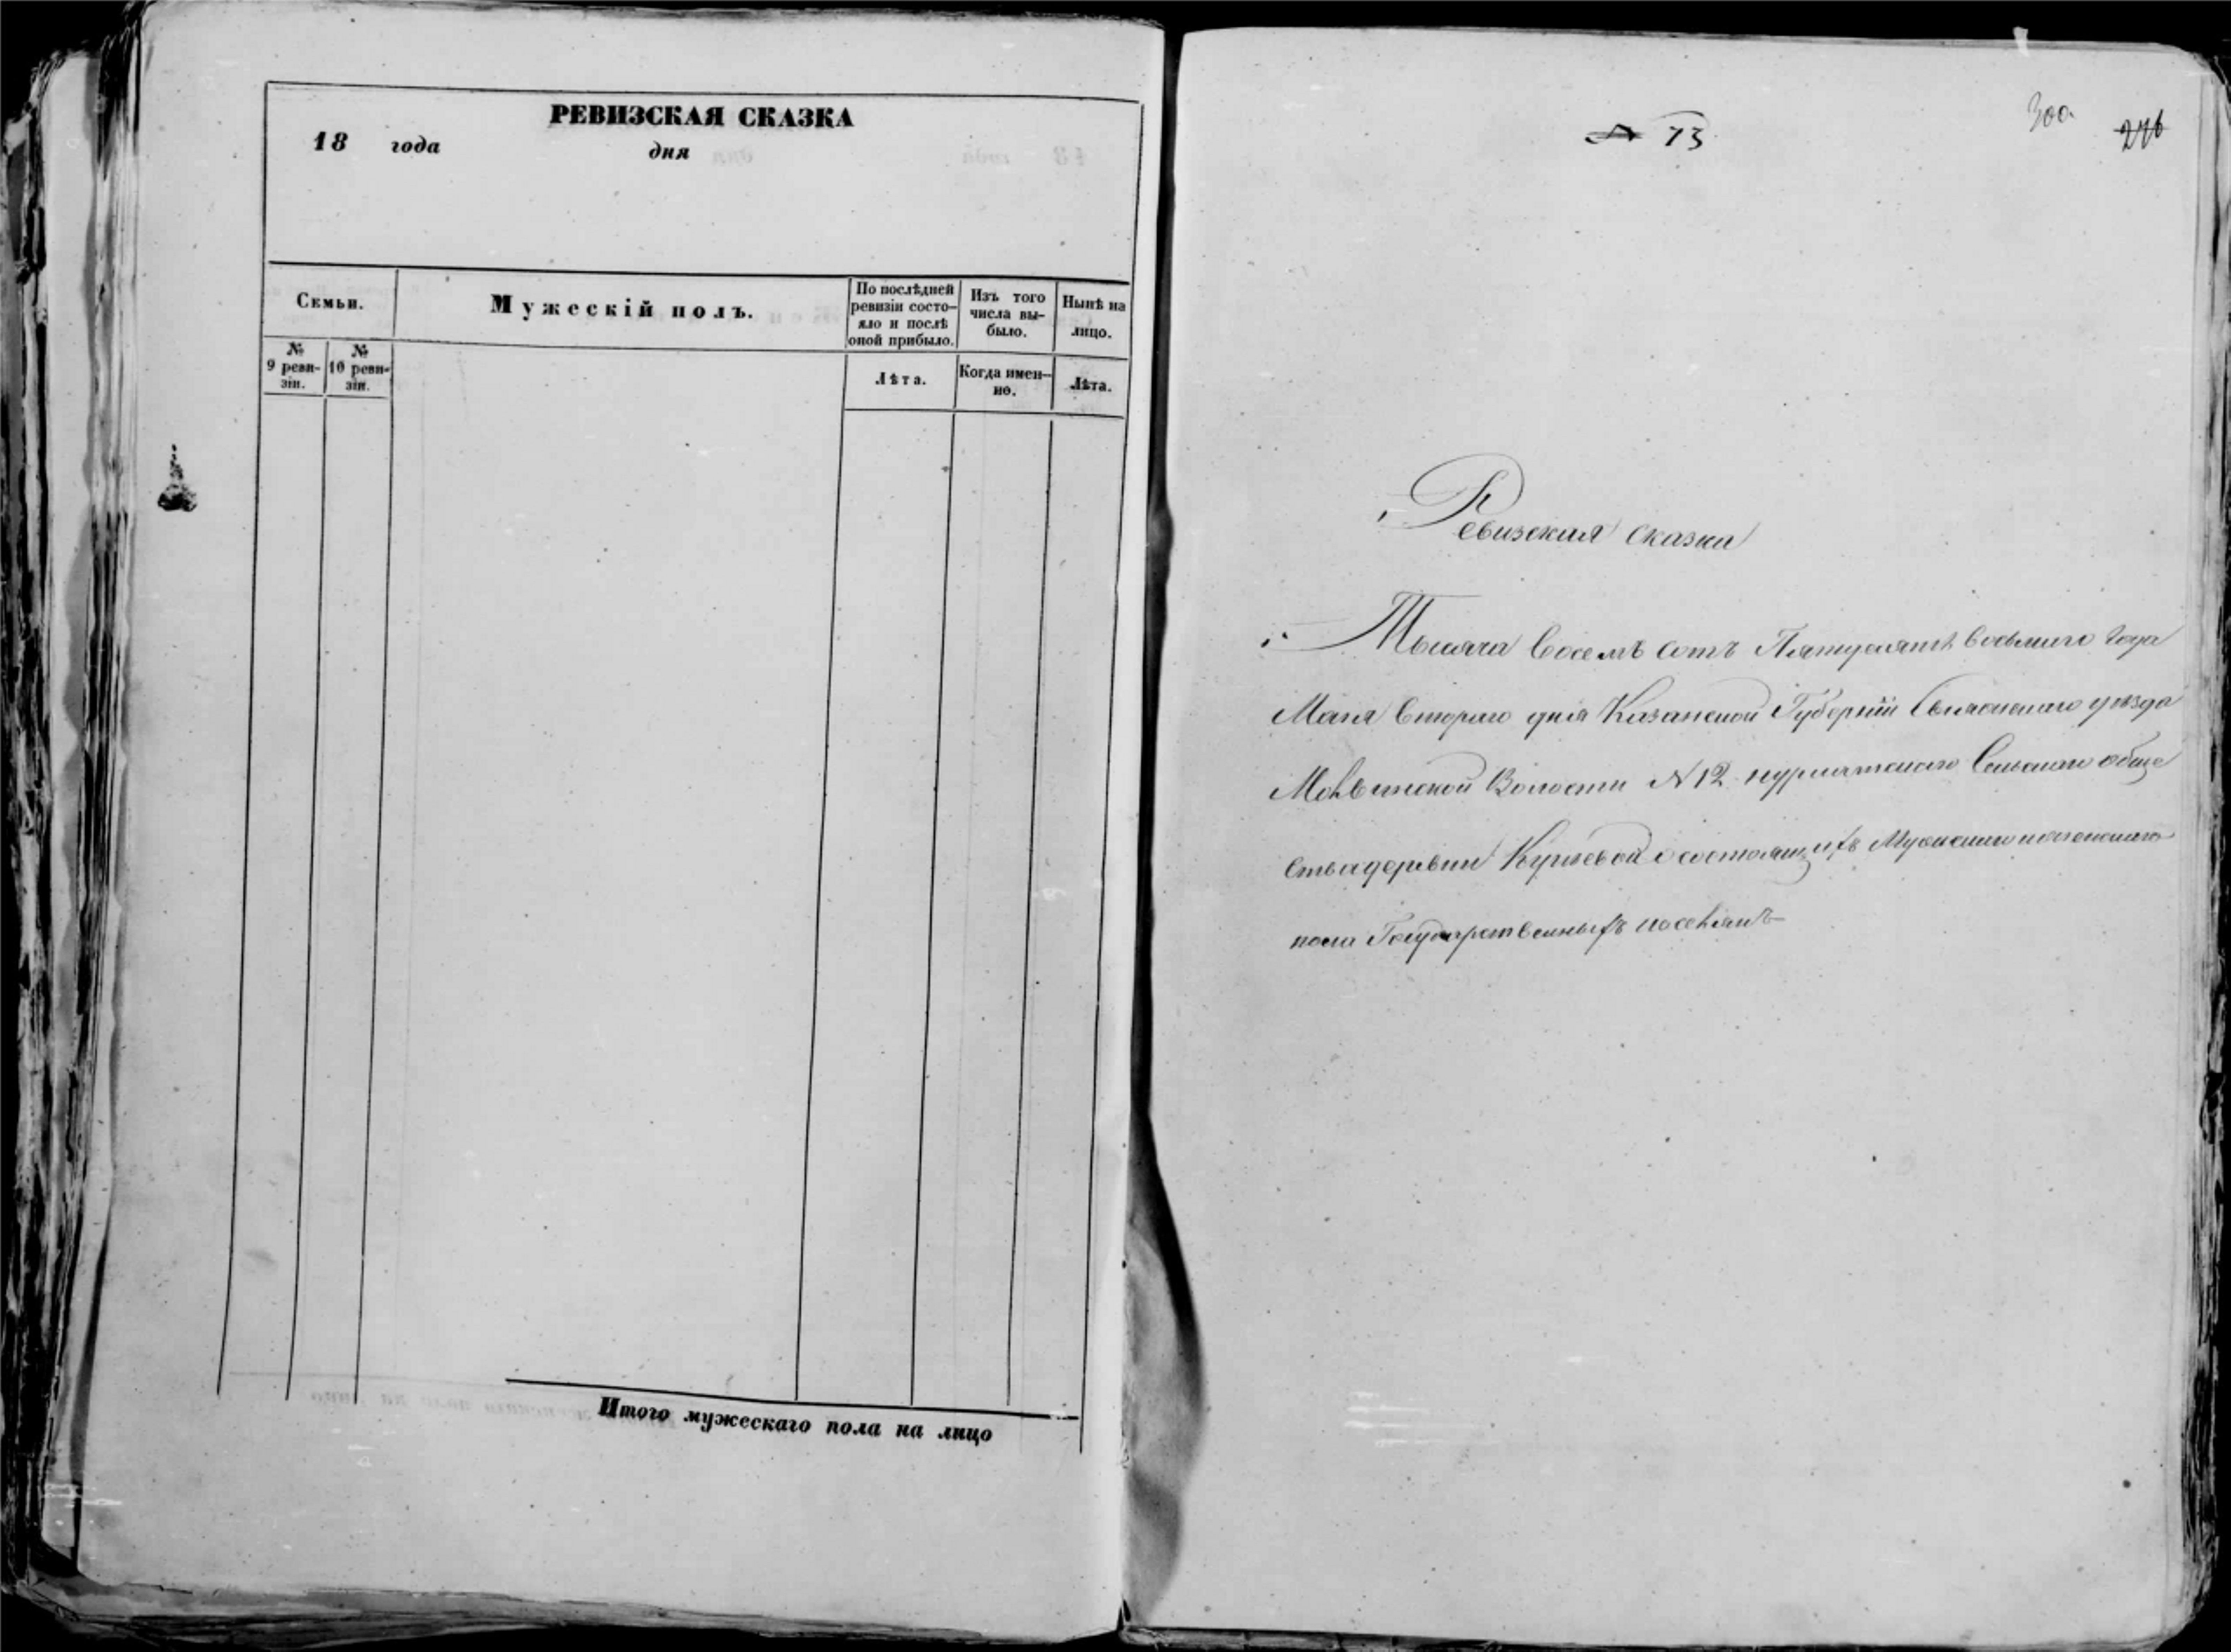 РЕВИЗСКАЯ СКАЗКА
18 года дня
Семьи.
Мужескій полъ.
По послѣдней ревизіи состо-
яло и послѣ
оной прибыло.
Изъ того
числа вы-
было.
Нынѣ на
лицо.
№
9 реви-
зіи.
№
10 реви-
зіи.
Лѣта.
Когда имен-
но.
Лѣта.
Итого мужескаго пола на лицо
73
300
276
Ревизская сказка
Тысяча восемь сотъ Пятьдесятъ восьмаго года
Маія втораго дня Казанской Губерніи Свіяжскаго уѣзда
Волости N 12 нурлатскаго Сельскаго обще
ства деревни о состоящихъ Мужескаго и женскаго
пола Государственныхъ поселянъ